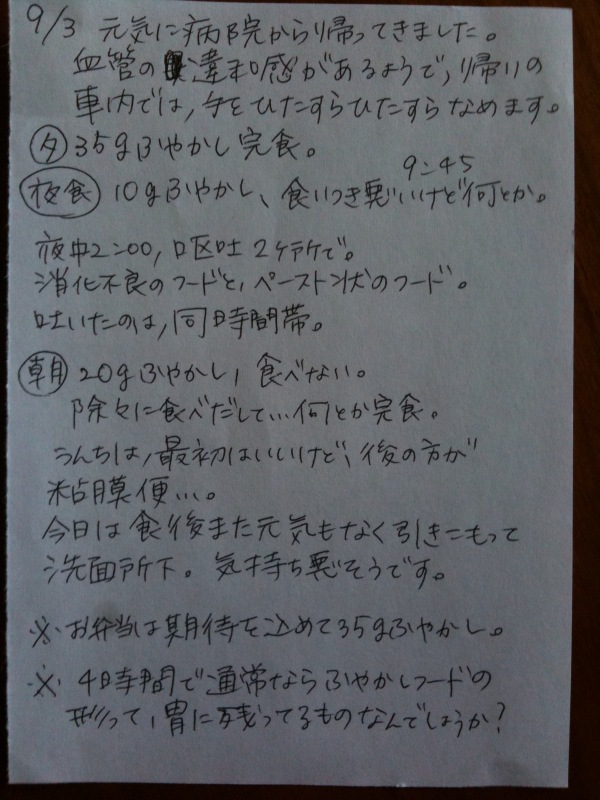 9/3 元気に病院から帰ってきました。
血管の違和感があるようで、帰りの
車内では、手をひたすらひたすらなめます。
夕 35gふやかし完食。
9:45
夜食 10gふやかし、食いつき悪いけど何とか。
夜中2:00、嘔吐2ヶ所で。
消化不良のフードと、ペースト状のフード。
吐いたのは、同時間帯。
朝 20gふやかし、食べない。
除々に食べだして…何とか完食。
うんちは、最初はいいけど、後の方が
粘膜便…。
今日は食後また元気もなく引きこもって
洗面所下。気持ち悪そうです。
※お弁当は期待を込めて35gふやかし。
※4時間で通常ならふやかしフードの
形って、胃に残ってるものなんでしょうか?